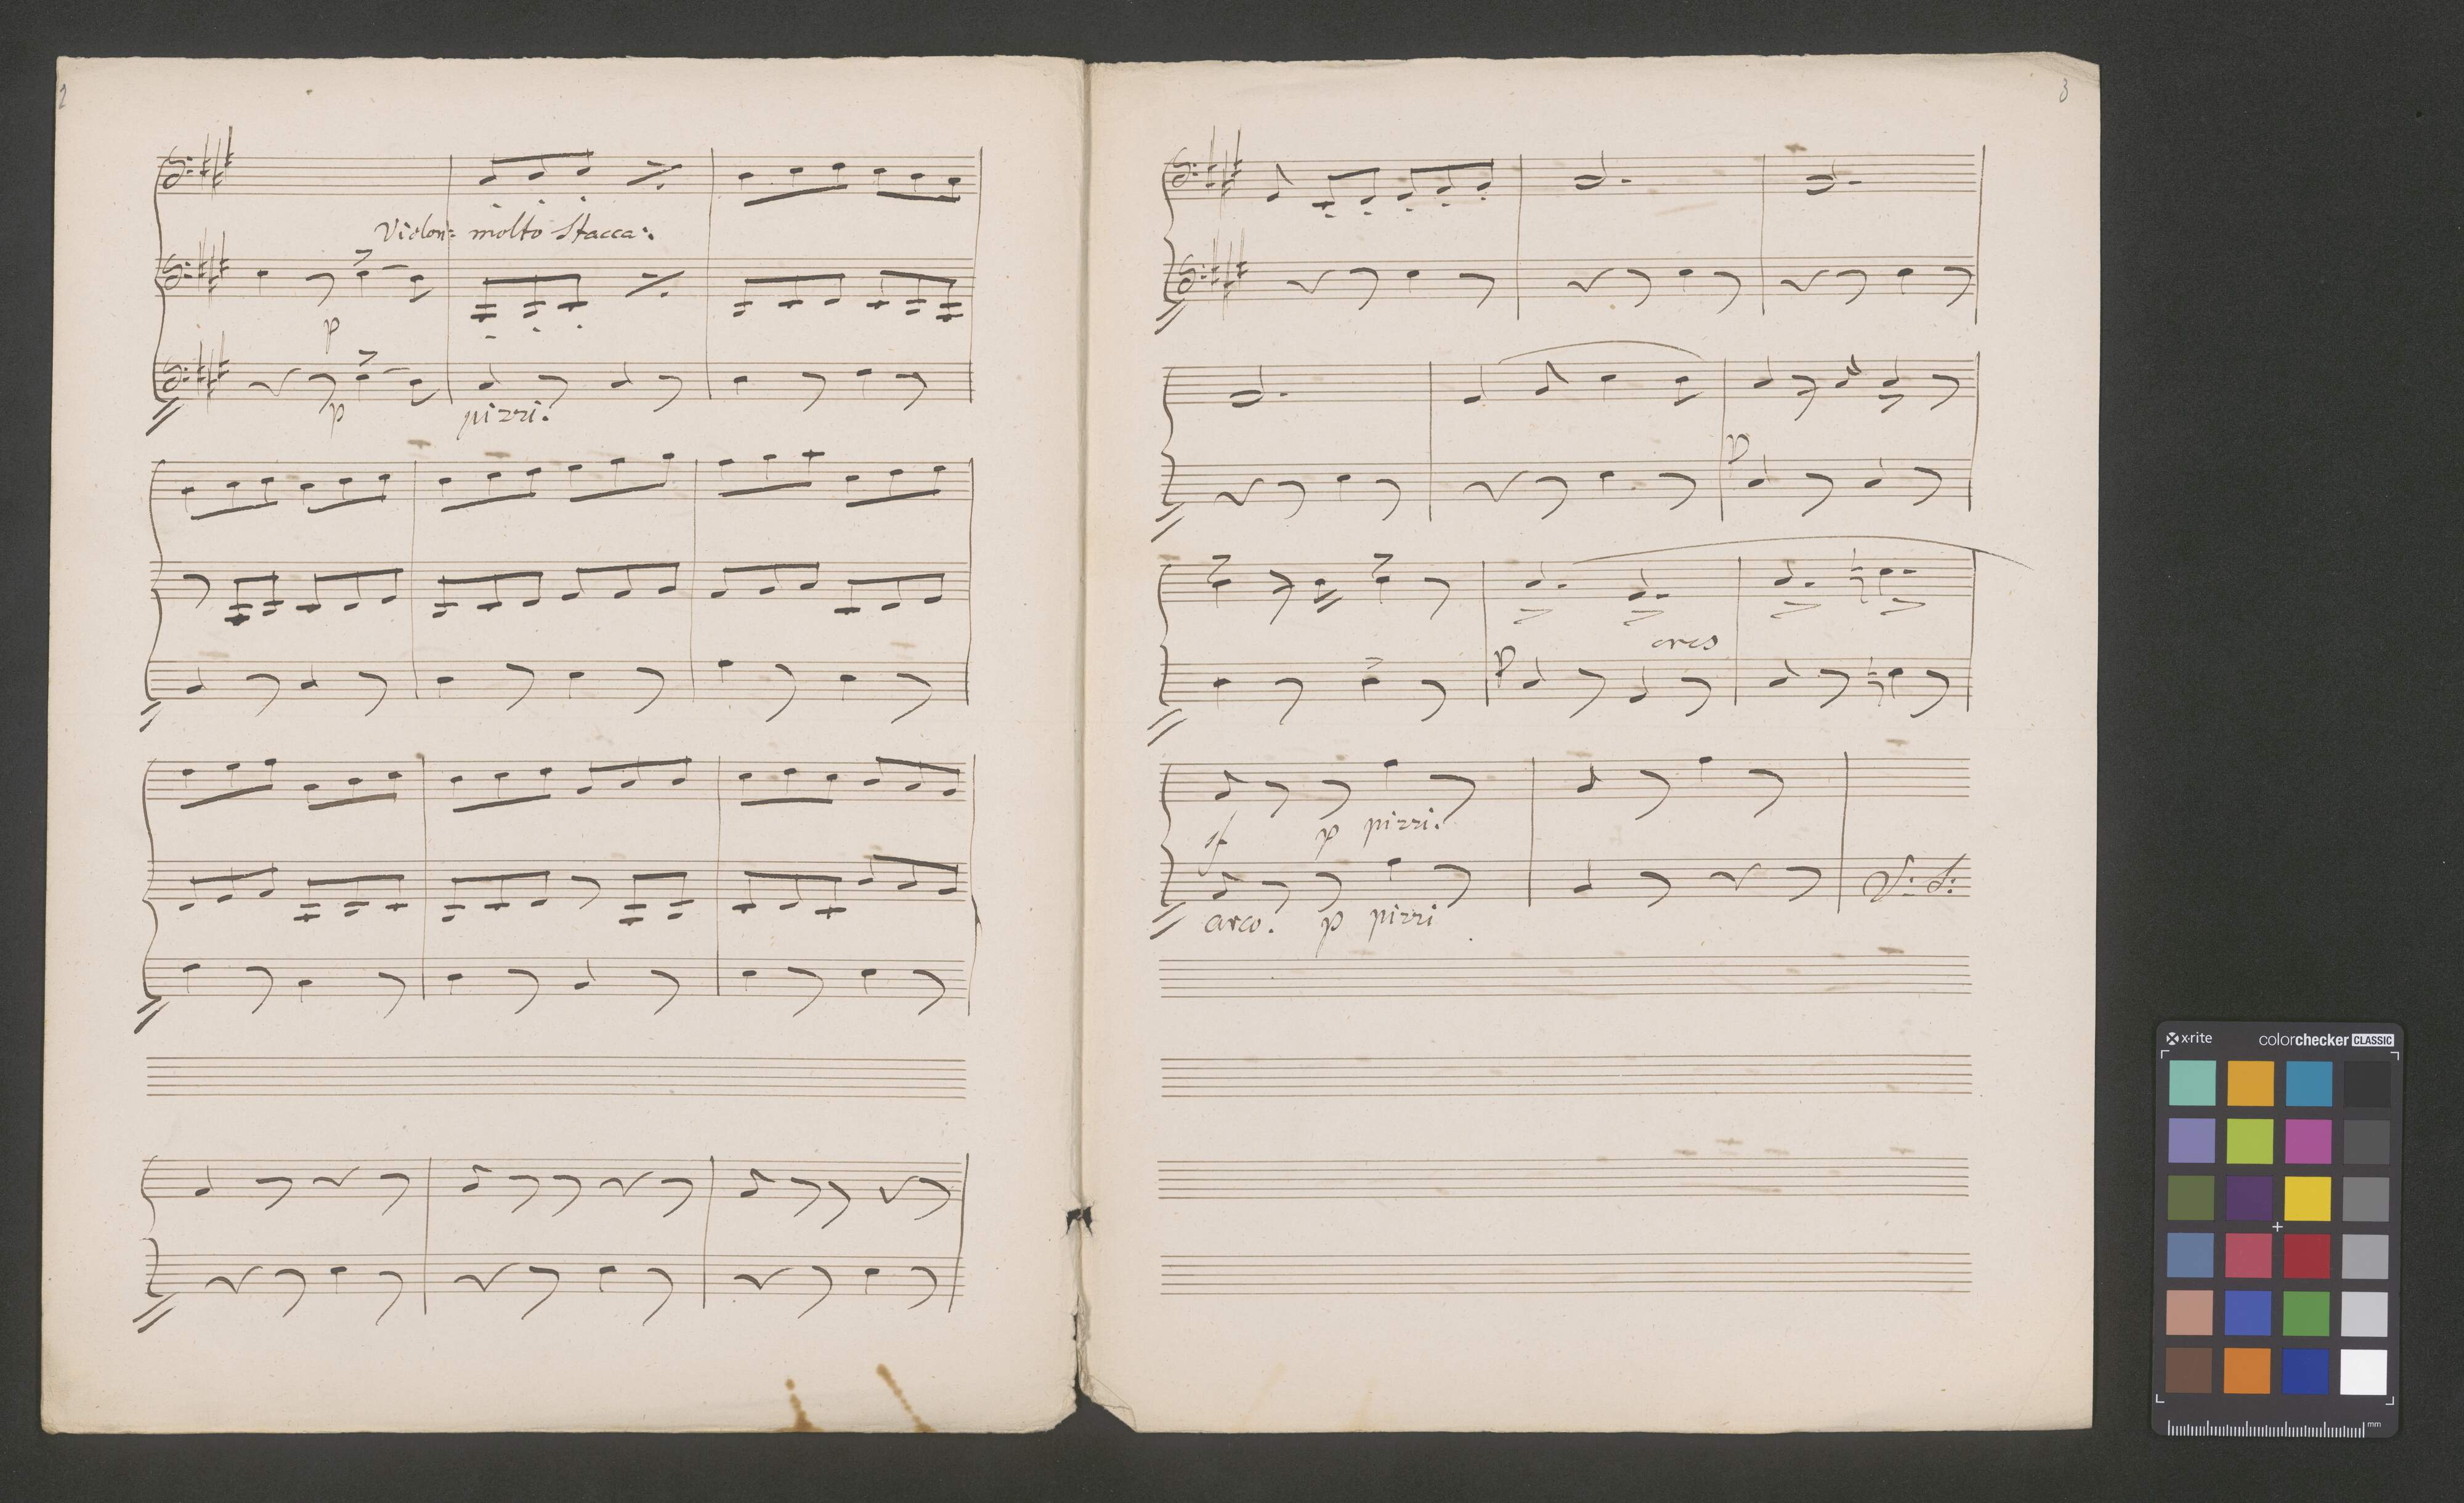 2
Violon: molto stacca:
p
p pizzi.
3
p
cres
p
sf p pizzi.
arco. p pizzi
x-rite colorchecker CLASSIC
mm